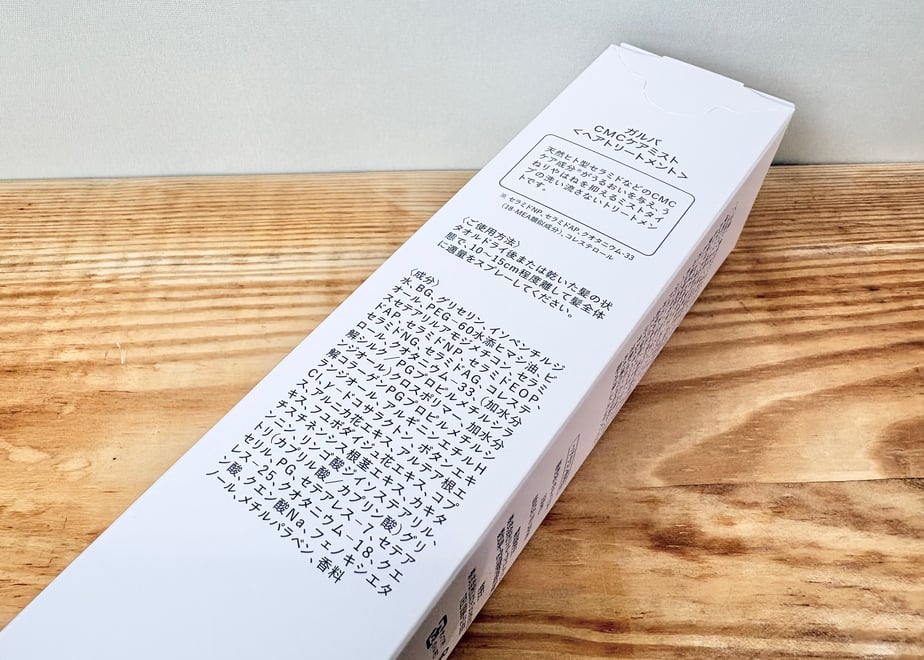 ガルバ
CMCケアミスト
<ヘアトリートメント>
天然ヒト型セラミドなどのCMC
ケア成分※がうるおいを与え、う
ねりやはねを抑えるミストタイ
プの洗い流さないトリートメン
トです。
※ セラミドNP、セラミドAP、クオタニウム-33
(18-MEA類似成分)、コレステロール
〈ご使用方法〉
タオルドライ後または乾いた髪の状
態で、10〜15cm程度離して髪全体
に適量をスプレーしてください。
〈成分〉
水、BG、グリセリン、イソペンチルジ
オール、PEG-60水添ヒマシ油、ビ
スセテアリルアモジメチコン、セラミ
ドAP、セラミドNP、セラミドEOP、
セラミドNG、セラミドAG、コレステ
ロール、クオタニウム-33、(加水分
解シルク/PGプロピルメチルシラ
ンジオール)クロスポリマー、加水分
解コラーゲンPGプロピルメチルシ
ランジオール、アルギニンエチルH
Cl、γ-ドコサラクトン、ボタンエキ
ス、アルニカ花エキス、アルテア根エ
キス、フユボダイジュ花エキス、コプ
チスチネンシス根茎エキス、カキタ
ンニン、リンゴ酸ジイソステアリル、
トリ(カプリル酸/カプリン酸)グリ
セリル、PG、セテアレス-7、セテア
レス-25、クオタニウム-18、クエ
ン酸、クエン酸Na、フェノキシエタ
ノール、メチルパラベン、香料